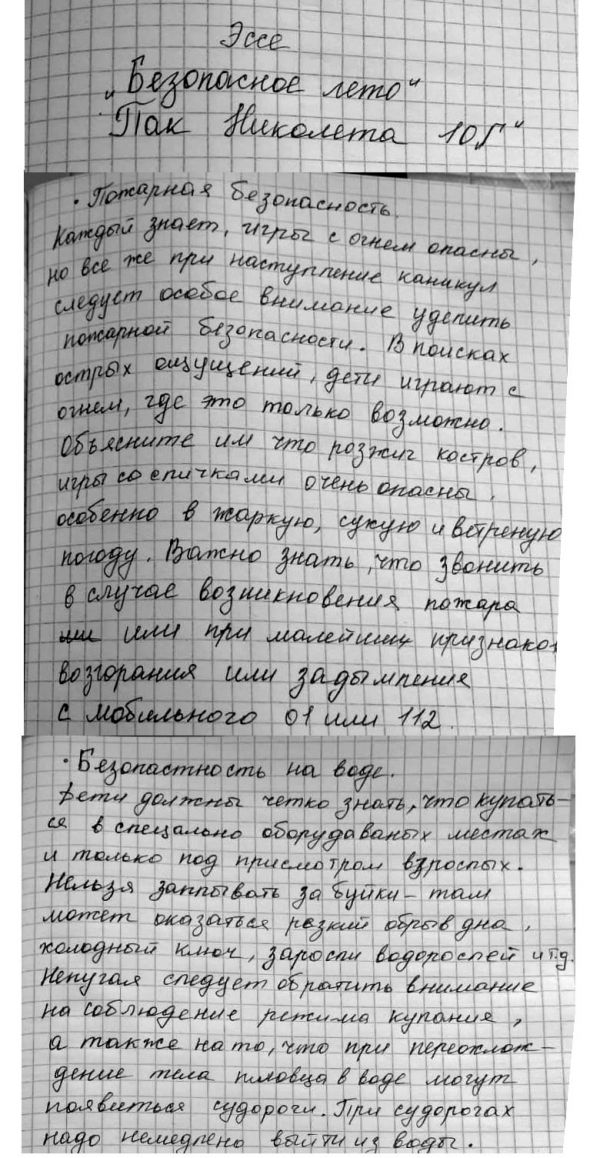 Эссе
„Безопасное лето"
Пак Николета 10Г"
• Пожарная безопасность.
Каждый знает, игры с огнем опасны,
но все же при наступление каникул
следует особое внимание уделить
пожарной безопасности. В поисках
острых ощущений, дети играют с
огнем, где это только возможно.
Объясните им что розжиг костров,
игры со спичками очень опасны,
особенно в жаркую, сухую и ветреную
погоду. Важно знать, что звонить
в случае возникновения пожара
или при малейших признаках
возгорания или задымления
с мобильного 01 или 112.
• Безопастность на воде.
Дети должны четко знать, что купать-
ся в спецально оборудаваных местах
и только под присмотром взрослых.
Нельзя заплывать за буйки – там
может оказаться резкий обрыв дна,
холодный ключ, заросли водорослей и т.д.
Непугая следует обратить внимание
на соблюдение режима купание,
а также на то, что при переохлож-
дение тела пловца в воде могут
появиться судороги. При судорогах
надо немедлено выйти из воды.